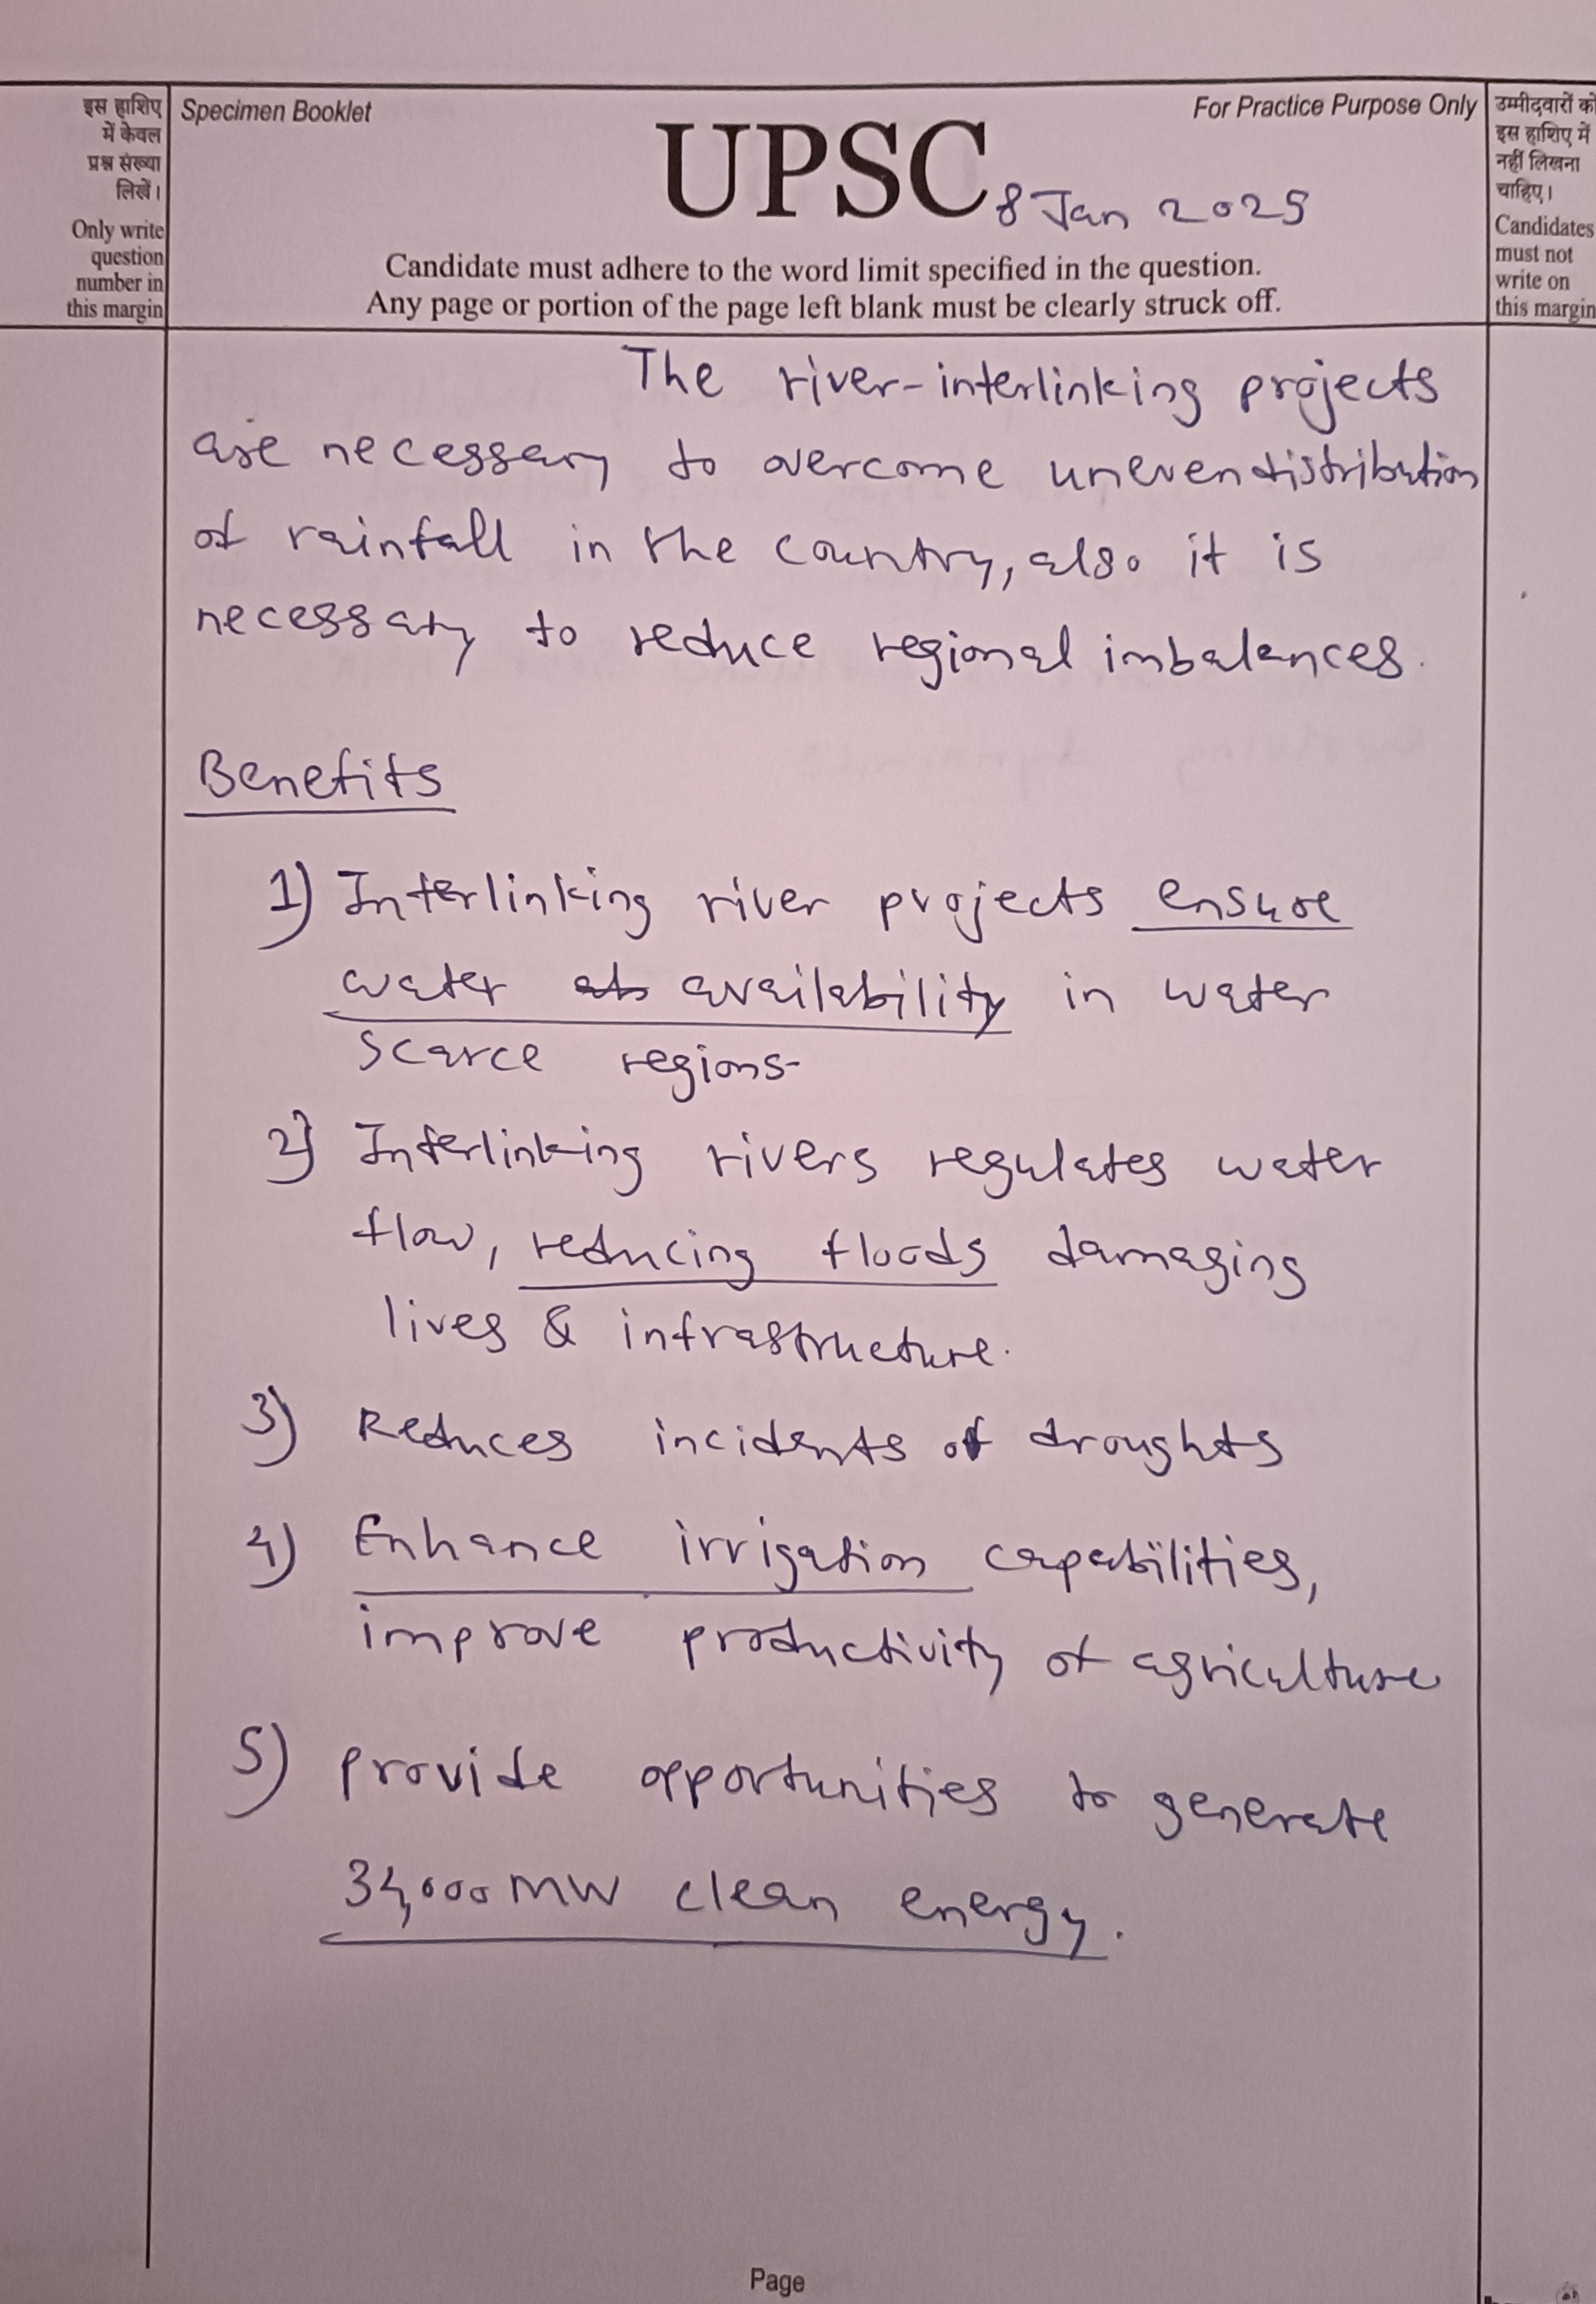 इस हाशिए
में केवल
प्रश्न संख्या
लिखें।
Only write
question
number in
this margin
Specimen Booklet
For Practice Purpose Only
UPSC
8 Jan 2025
Candidate must adhere to the word limit specified in the question.
Any page or portion of the page left blank must be clearly struck off.
उम्मीदवारों को
इस हाशिए में
नहीं लिखना
चाहिए।
Candidates
must not
write on
this margin
The river-interlinking projects
are necessary to overcome uneven distribution
of rainfall in the country, also it is
necessary to reduce regional imbalances.
Benefits
1) Interlinking river projects ensure
water availability in water
scarce regions-
2) Interlinking rivers regulates water
flow, reducing floods damaging
lives & infrastructure.
3) Reduces incidents of droughts
4) Enhance irrigation capabilities,
improve productivity of agriculture
5) Provide opportunities to generate
34,000 MW clean energy.
Page